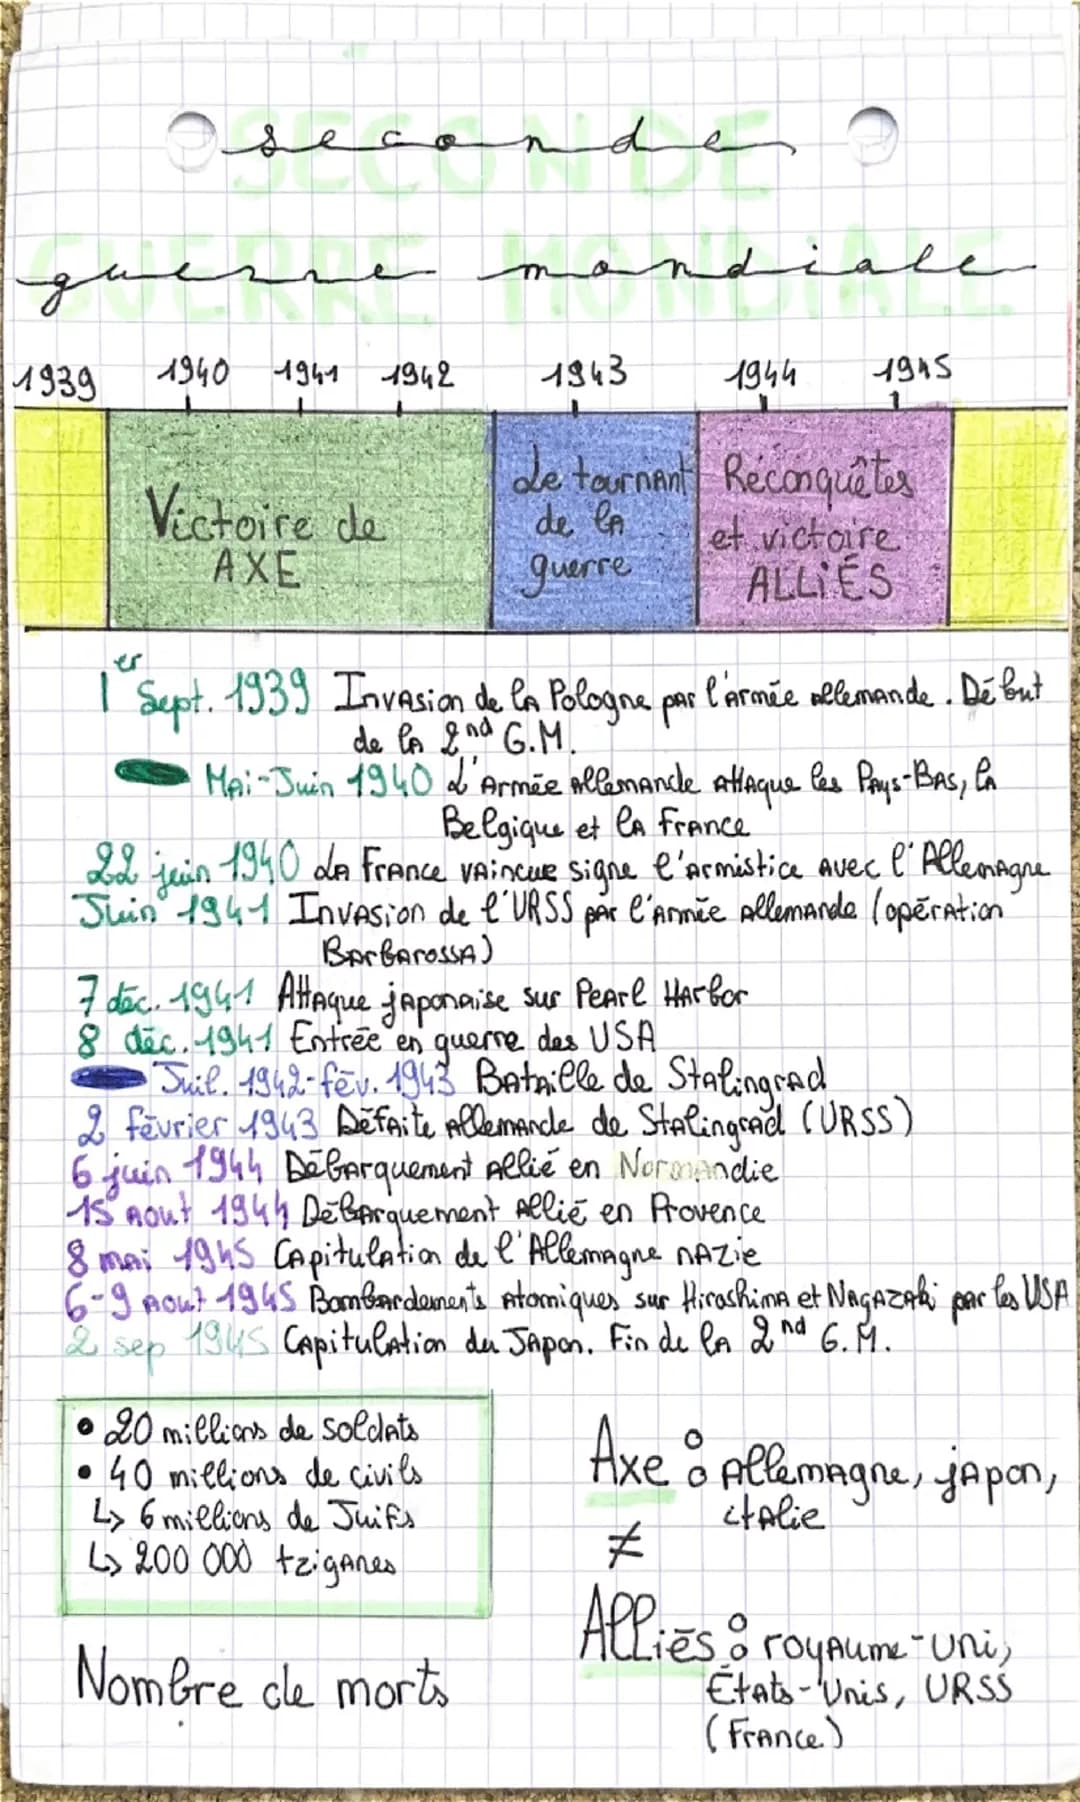 SECONDE
seconde
GUERRE MONDIALE
guerre mondiale
1939 1940 1941 1942 1943 1944 1945
Victoire de
AXE
Le tournant
de la
guerre
Réconquêtes
et victoire
ALLIÉS
1er Sept. 1939 Invasion de la Pologne par l'armée allemande. Début
de la 2nd G.M.
Mai-Juin 1940 L'Armée allemande attaque les Pays-Bas, la
Belgique et la France
22 juin 1940 La France vaincue signe l'armistice avec l'Allemagne
Juin 1941 Invasion de l'URSS par l'Armée allemande (opération
Barbarossa)
7 déc. 1941 Attaque japonaise sur Pearl Harbor
8 déc. 1941 Entrée en guerre des USA
Juil. 1942-fév. 1943 Bataille de Stalingrad
2 février 1943 Défaite allemande de Stalingrad (URSS)
6 juin 1944 Débarquement allié en Normandie
15 aout 1944 Débarquement allié en Provence
8 mai 1945 Capitulation de l'Allemagne nazie
6-9 aout 1945 Bombardements atomiques sur Hiroshima et Nagazaki par les USA
2 sep 1945 Capitulation du Japon. Fin de la 2nd G.M.
• 20 millions de soldats
• 40 millions de civils
↳ 6 millions de Juifs
↳ 200 000 tziganes
Nombre de morts
Axe : Allemagne, japon,
italie
≠
Alliés : royaume-uni,
États-Unis, URSS
(France)